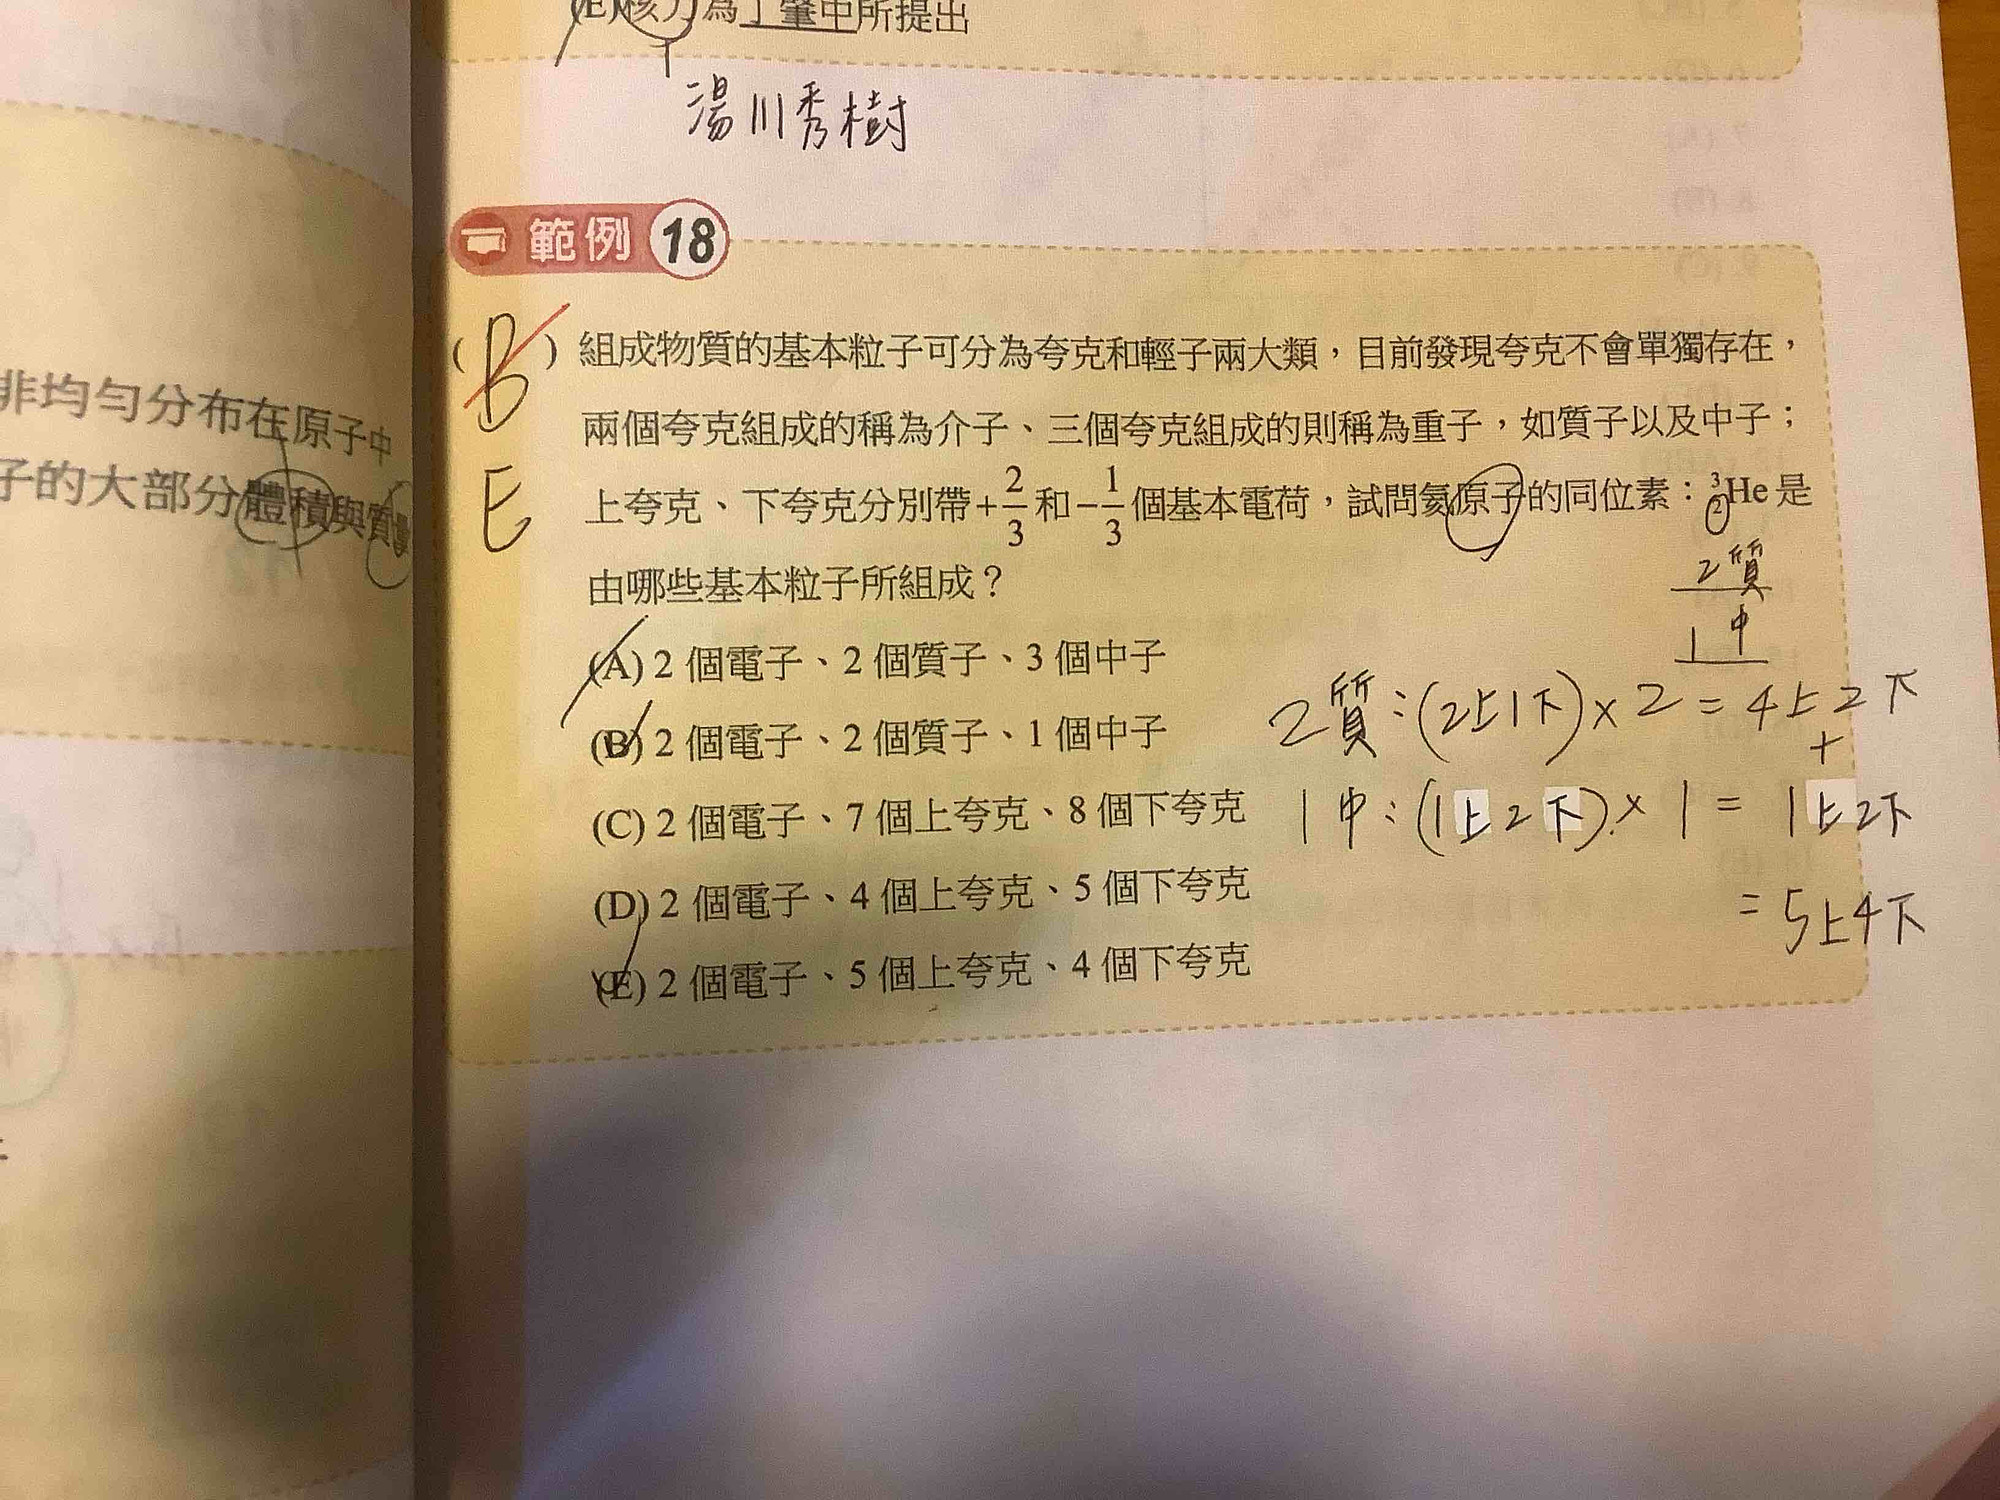 (E)核力為丁肇中所提出
湯川秀樹
非均勻分布在原子中
子的大部分體積與質量
範例 18
(B) 組成物質的基本粒子可分為夸克和輕子兩大類，目前發現夸克不會單獨存在，
兩個夸克組成的稱為介子、三個夸克組成的則稱為重子，如質子以及中子；
E
上夸克、下夸克分別帶+2/3和-1/3個基本電荷，試問氦原子的同位素：³₂He是
由哪些基本粒子所組成？
2質
1中
(A) 2 個電子、2 個質子、3 個中子
(B) 2 個電子、2 個質子、1 個中子
2質：(2上1下)×2=4上2下
+
(C) 2 個電子、7 個上夸克、8 個下夸克
1中：(1上2下)×1=1上2下
(D) 2 個電子、4 個上夸克、5 個下夸克
=5上4下
(E) 2 個電子、5 個上夸克、4 個下夸克